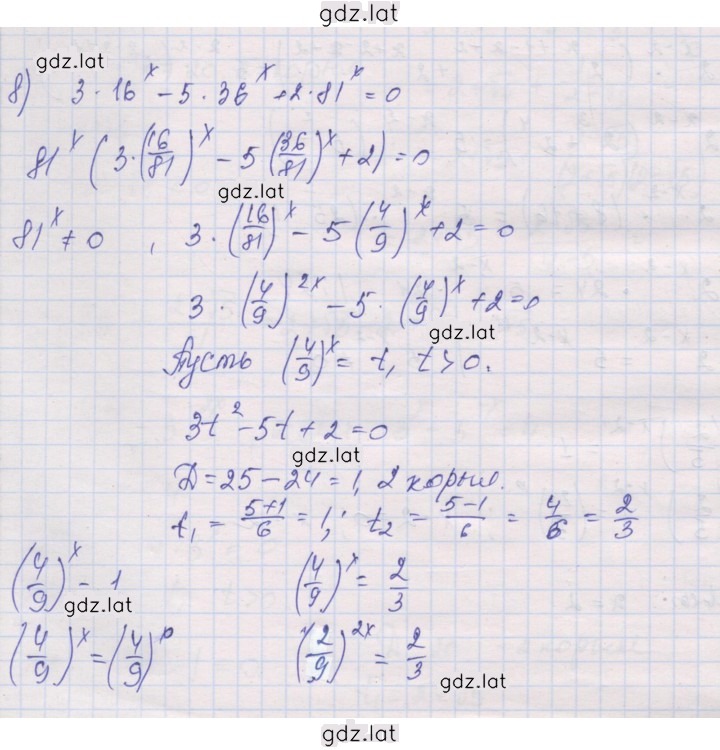 gdz.lat
gdz.lat
8) 3·16^x − 5·36^x + 2·81^x = 0
81^x (3·(16/81)^x − 5(36/81)^x + 2) = 0
gdz.lat
81^x ≠ 0 , 3·(16/81)^x − 5(4/9)^x + 2 = 0
3·(4/9)^2x − 5·(4/9)^x + 2 = 0
gdz.lat
Пусть (4/9)^x = t, t > 0.
3t^2 − 5t + 2 = 0
gdz.lat
D = 25 − 24 = 1, 2 корня.
t₁ = (5+1)/6 = 1; t₂ = (5−1)/6 = 4/6 = 2/3
(4/9)^x − 1 (4/9)^x = 2/3
gdz.lat
(4/9)^x = (4/9)^0 (2/9)^2x = 2/3
gdz.lat
gdz.lat